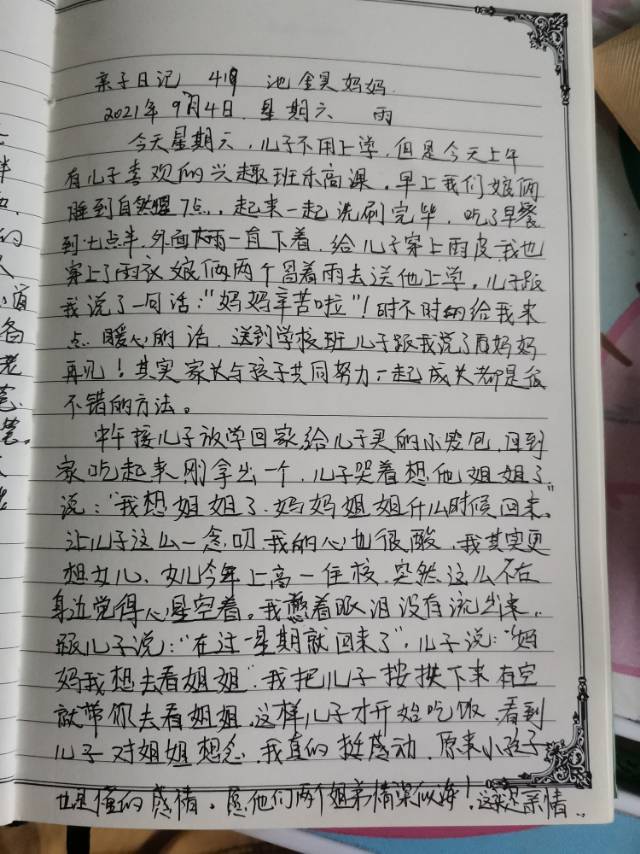 亲子日记 419 池錤妈妈
2021年9月4日 星期六 雨
今天星期六，儿子不用上学，但是今天上午
有儿子喜欢的兴趣班乐高课，早上我们娘俩
睡到自然醒7点，起来一起洗刷完毕，吃了早餐
到七点半，外面大雨一直下着，给儿子穿上雨皮我也
穿上了雨衣娘俩两个冒着雨去送他上学，儿子跟
我说了一句话："妈妈辛苦啦"！时不时的给我来
点暖心的话，送到学校班儿子跟我说了句妈妈
再见！其实家长与孩子共同努力一起成长都是很
不错的方法。
中午接儿子放学回家给儿子买的小发包，回到
家吃起来刚拿出一个，儿子哭着想他姐姐了
说："我想姐姐了，妈妈姐姐什么时候回来"
让儿子这么一念叨，我的心也很酸，我其实更
想女儿，女儿今年上高一住校，突然这么不在
身边觉得心里空着，我憋着眼泪没有流出来，
跟儿子说："在过一星期就回来了"，儿子说："妈
妈我想去看姐姐"我把儿子按挨下来有空
就带你去看姐姐，这样儿子才开始吃饭，看到
儿子对姐姐想念，我真的挺感动，原来小孩子
也是懂的感情。愿他们两个姐弟情深似海！这就是亲情
半
的
人
道
备
老
笔